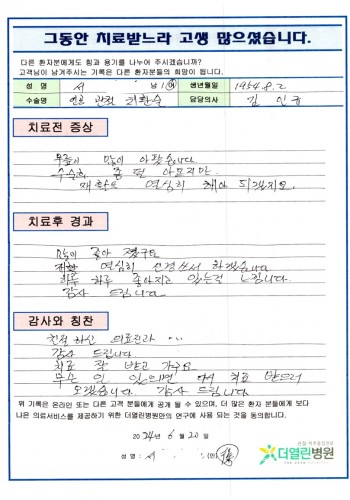 그동안 치료받느라 고생 많으셨습니다.
다른 환자분에게도 힘과 용기를 나누어 주시겠습니까?
고객님이 남겨주시는 기록은 다른 환자분들의 희망이 됩니다.
성 명 서 남 / 여 생년월일 1954.8.2
수술명 인공 관절 치환술 담당의사 김
치료전 증상
무릎이 많이 아팠습니다
수술후 좀 덜 아프지만
재활도 열심히 해야 되겠지요.
치료후 경과
많이 좋아 졌구요
재활 열심히 신경써서 하겠습니다
하루 하루 좋아지고 있는걸 느낍니다.
감사 드립니다.
감사와 칭찬
친절 하신 의료진과 ...
감사 드립니다
치료 잘 받고 가구요
무슨 일 있으면 또 치료 받으러
오겠습니다. 감사 드립니다.
위 기록은 온라인 또는 다른 고객 분들에게 공개 될 수 있으며, 더 많은 환자 분들에게 보다
나은 의료서비스를 제공하기 위한 더열린병원만의 연구에 사용 되는 것을 동의합니다.
2024년 6월 20일
성 명 : 서 (인)
관절·척추중점진료
더열린병원